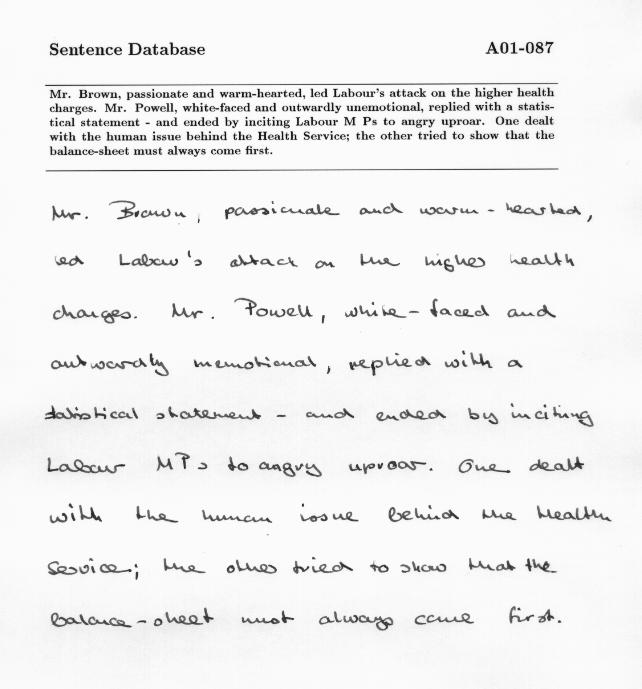 Sentence Database A01-087
Mr. Brown, passionate and warm-hearted, led Labour's attack on the higher health
charges. Mr. Powell, white-faced and outwardly unemotional, replied with a statis-
tical statement - and ended by inciting Labour M Ps to angry uproar. One dealt
with the human issue behind the Health Service; the other tried to show that the
balance-sheet must always come first.
Mr. Brown, passionate and warm-hearted,
led Labour's attack on the higher health
charges. Mr. Powell, white-faced and
outwardly unemotional, replied with a
statistical statement - and ended by inciting
Labour MPs to angry uproar. One dealt
with the human issue behind the Health
Service; the other tried to show that the
balance-sheet must always come first.